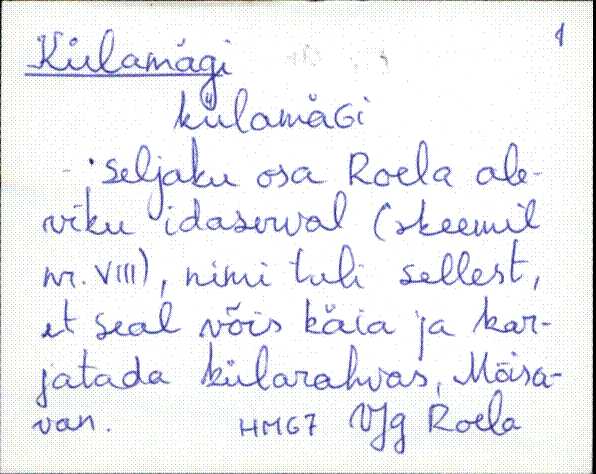 1
Külamägi
külamäGi
- ·seljaku osa Roela ale-
viku idaserval (skeemil
nr. VIII), nimi tuli sellest,
et seal võis käia ja kar-
jatada külarahvas, Mõisa-
van. HM67 VJg Roela